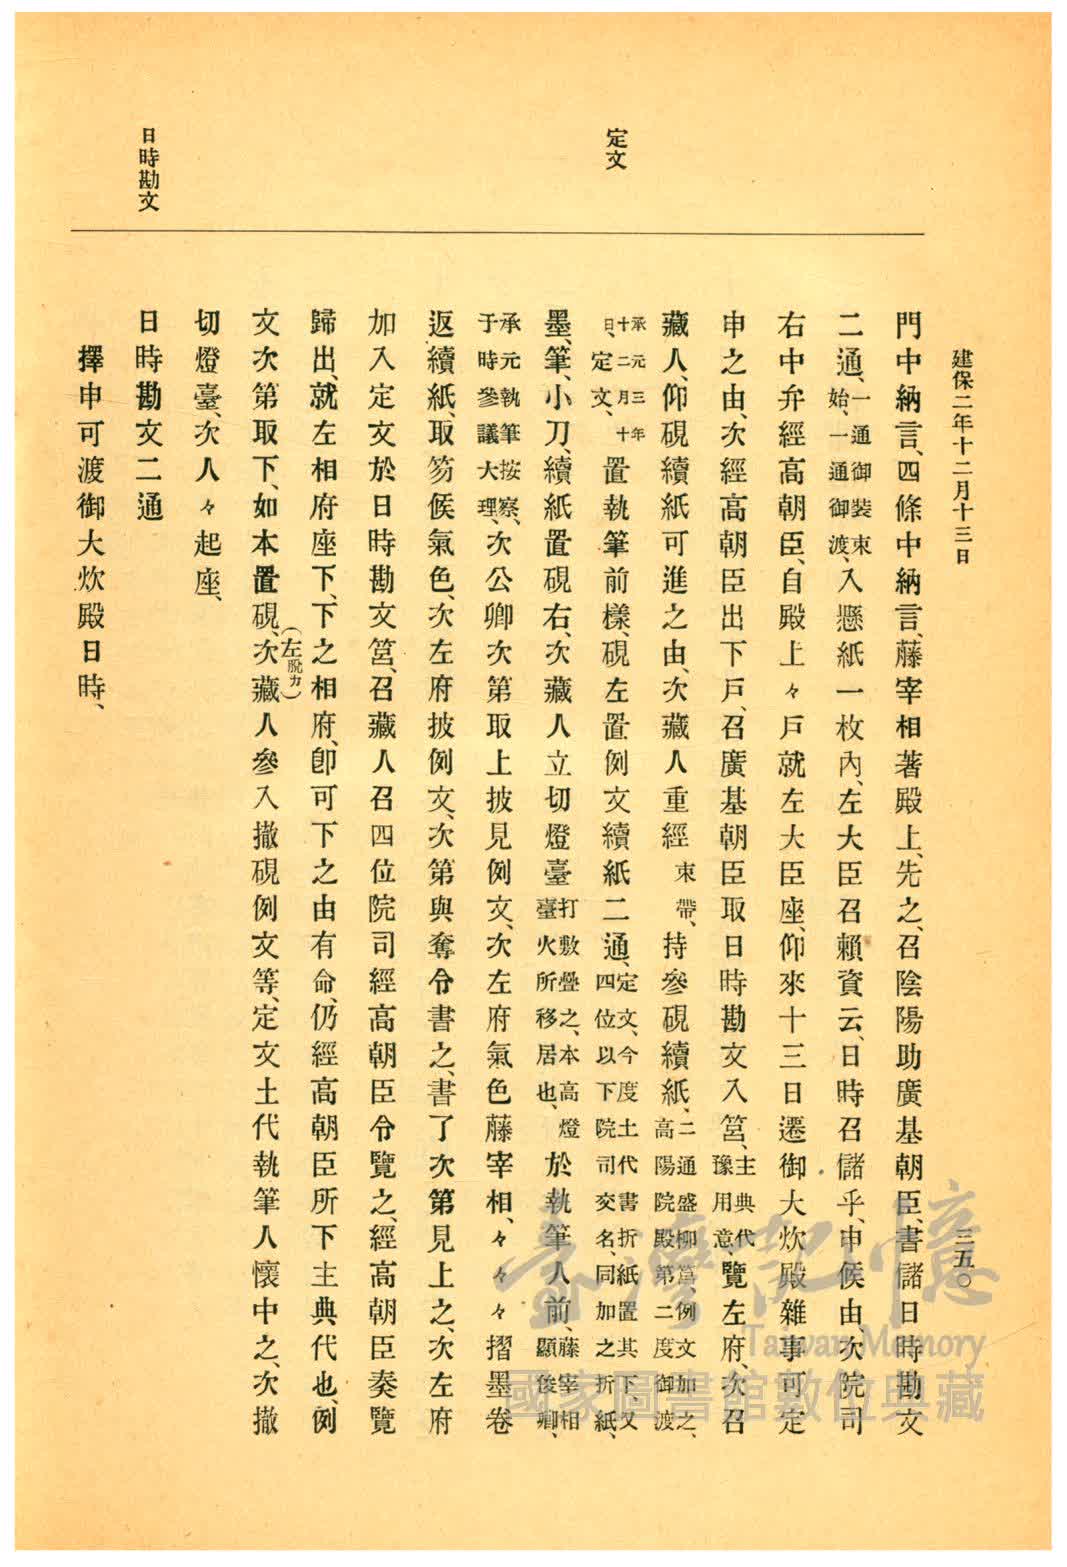 建保二年十二月十三日
三五〇
定文
日時勘文
門中納言、四條中納言、藤宰相著殿上、先之、召陰陽助廣基朝臣、書儲日時勘文
二通、一通御裝束始、一通御渡、入懸紙一枚內、左大臣召賴資云、日時召儲乎、申候由、次院司
右中弁經高朝臣、自殿上々戶就左大臣座、仰來十三日遷御大炊殿雜事可定
申之由、次經高朝臣出下戶、召廣基朝臣取日時勘文入筥、主典代豫用意、覽左府、次召
藏人、仰硯續紙可進之由、次藏人重經束帶、持參硯續紙、二通盛柳筥、例文加之、高陽院殿第二度御渡
承元三年十二月十日、定文、置執筆前樣、硯左置例文續紙二通、定文、今度土代書折紙置其下、又四位以下院司交名、同加之折紙、
墨、筆、小刀、續紙置硯右、次藏人立切燈臺打敷疊之、本高燈臺火所移居也、於執筆人前、藤宰相顯俊卿、
承元執筆按察、于時參議大理、次公卿次第取上披見例文、次左府氣色藤宰相、々々々摺墨卷
返續紙、取笏候氣色、次左府披例文、次第與奪令書之、書了次第見上之、次左府
加入定文於日時勘文筥、召藏人召四位院司經高朝臣令覽之、經高朝臣奏覽
歸出、就左相府座下、下之相府、卽可下之由有命、仍經高朝臣所下主典代也、例
文次第取下、如本置硯、次(左脫カ)藏人參入撤硯例文等、定文土代執筆人懷中之、次撤
切燈臺、次人々起座、
日時勘文二通
擇申可渡御大炊殿日時、
臺灣記憶
Taiwan Memory
國家圖書館數位典藏